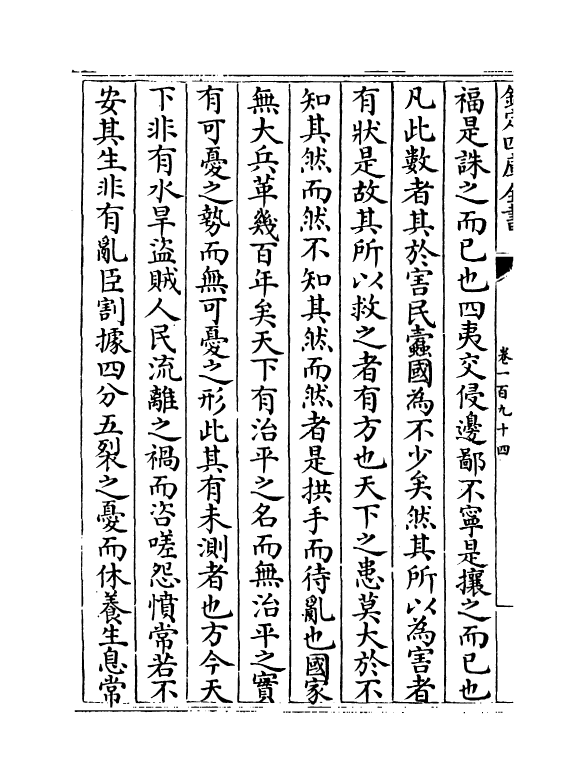 欽定四庫全書
卷一百九十四
福是誅之而已也四夷交侵邊鄙不寧是攘之而已也
凡此數者其於害民蠹國為不少矣然其所以為害者
有狀是故其所以救之者有方也天下之患莫大於不
知其然而然不知其然而然者是拱手而待亂也國家
無大兵革幾百年矣天下有治平之名而無治平之實
有可憂之勢而無可憂之形此其有未測者也方今天
下非有水旱盜賊人民流離之禍而咨嗟怨憤常若不
安其生非有亂臣割據四分五裂之憂而休養生息常